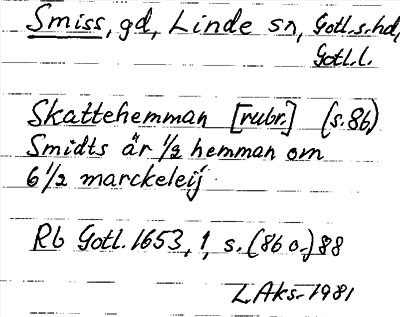 Smiss, gd, Linde sn, Gotl.s.hd,
Gotl.l.
Skattehemman [rubr.] (s.86)
Smidts är 1/2 hemman om
6 1/2 marckeleij
Rb Gotl. 1653, 1, s. (86 o.) 88
L Aks- 1981